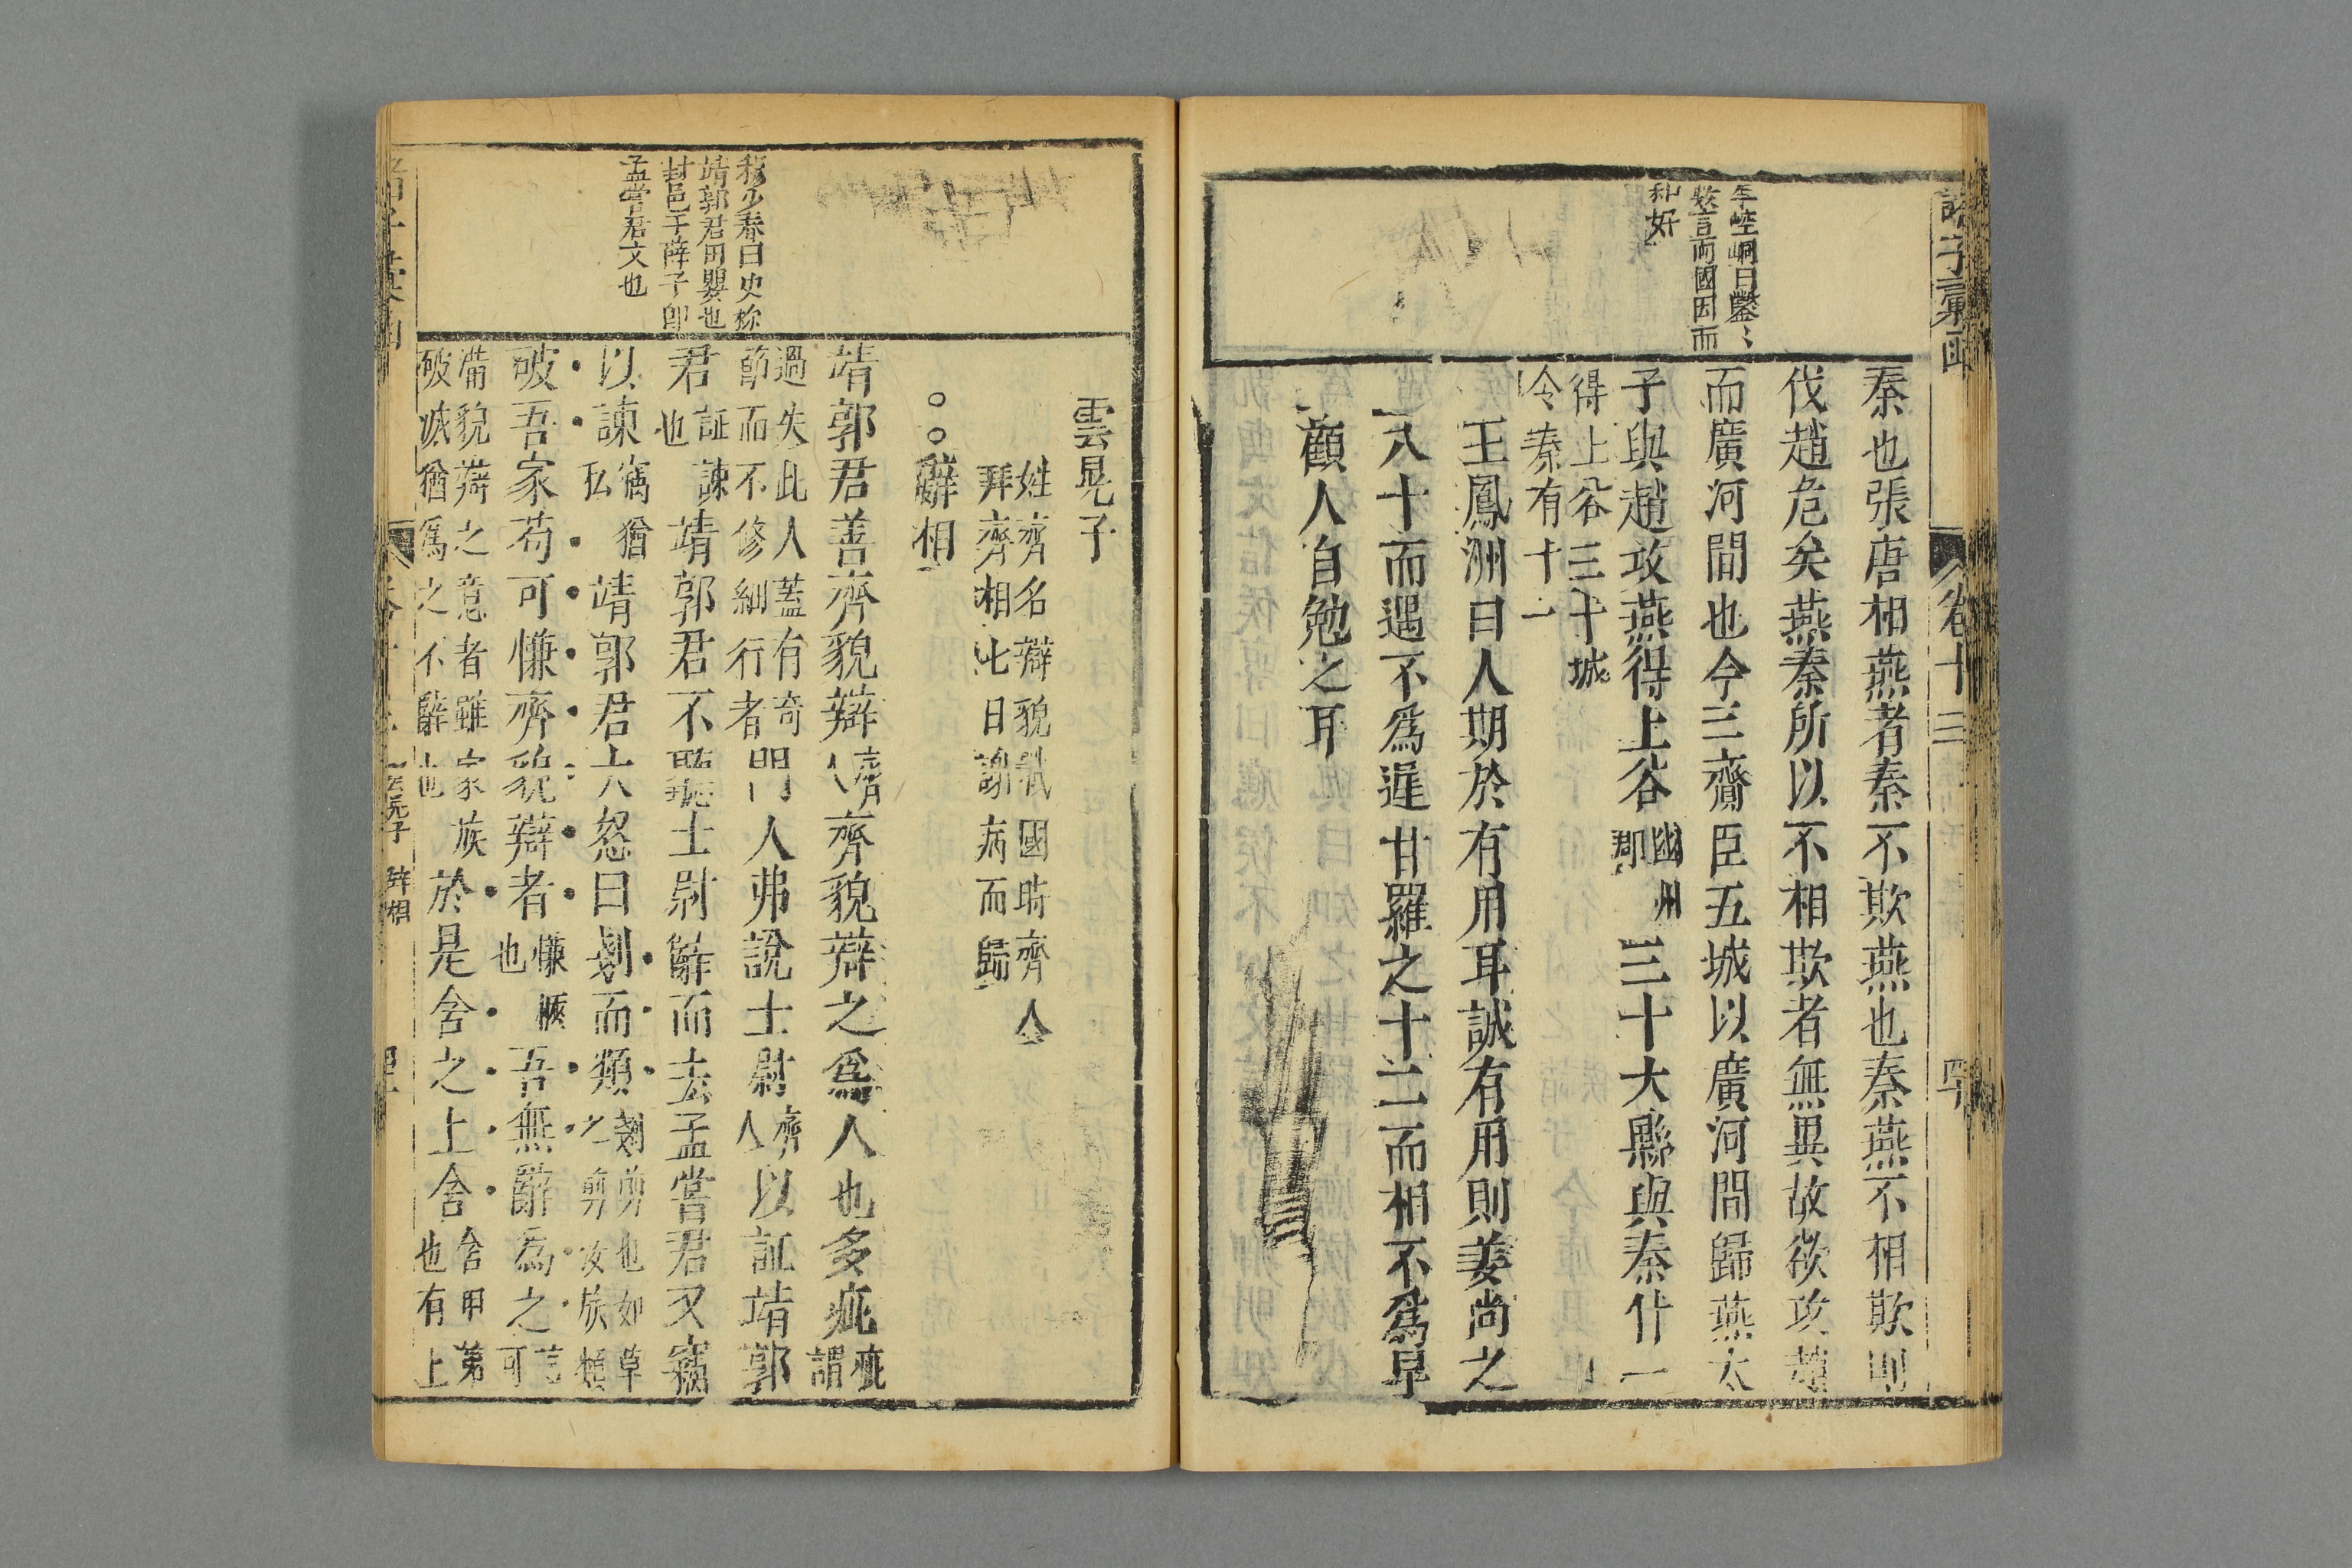 諸子彙函
卷十三
四
李崆峒曰鑿鑿
數言兩國因而
和好
秦也張唐相燕者秦不欺燕也秦燕不相欺則
伐趙危矣燕秦所以不相欺者無異故欲攻趙
而廣河間也今王齎臣五城以廣河間歸燕太
子與趙攻燕得上谷幽州郡三十大縣與秦什一
得上谷三十城
令秦有十一
王鳳洲曰人期於有用耳誠有用則姜尚之
八十而遇不爲遲甘羅之十二而相不爲早
顧人自勉之耳
靖郭君田嬰也
封邑于薛子即
孟嘗君文也
雲晃子
姓齊名辯貌戰國時齊人
拜齊相七日謝病而歸
辭相
靖郭君善齊貌辯齊人齊貌辯之爲人也多疵疵謂
過失此人蓋有奇
節而不修細行者門人弗說士尉齊人以証靖郭
君証諫也靖郭君不聽士尉辭而去孟嘗君又竊
以諫竊猶私靖郭君大怒曰剗而類剗剪也如草之剪汝族類
破吾家苟可慊齊貌辯者慊愜也吾無辭爲之言可
備貌辯之意者雖家族
破滅猶爲之不辭也於是舍之上舍舍甲第也有上
雲晃子 辭相